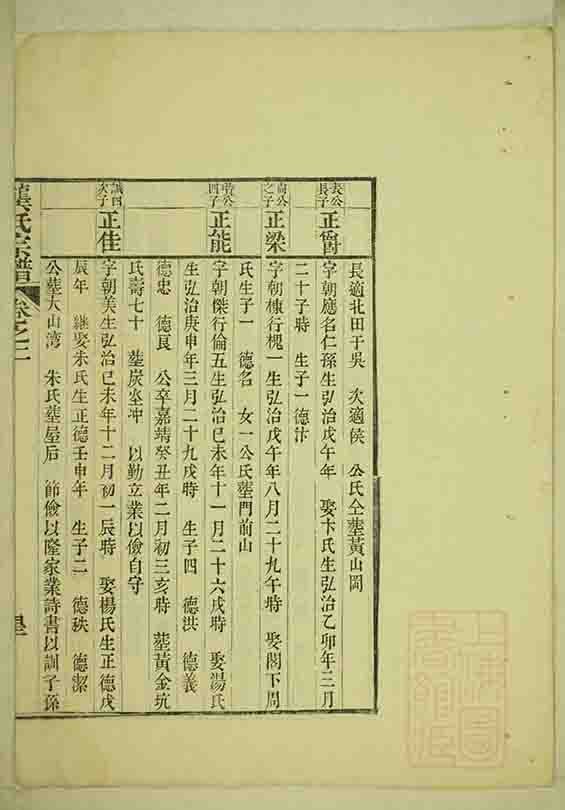 長適北田于吳 次適侯 公氏仝塟黃山岡
表公長子 正爵 字朝應名仁孫生弘治戊午年 娶卞氏生弘治乙卯年三月
二十子時 生子一德汴
公之子 正梁 字朝棟行槐一生弘治戊午年八月二十九午時 娶閣下周
氏生子一 德名 女一公氏塟門前山
公四子 正能 字朝傑行倫五生弘治己未年十一月二十六戌時 娶湯氏
生弘治庚申年三月二十九戌時 生子四 德洪 德義
德忠 德良 公卒嘉靖癸丑年二月初三亥時 塟黃金坑
氏壽七十 塟炭埊冲 以勤立業以儉自守
誠四次子 正佳 字朝美生弘治己未年十二月初一辰時 娶楊氏生正德戊
辰年 繼娶朱氏生正德壬申年 生子二 德秧 德潔
公塟大山湾 朱氏塟屋后 節儉以隆家業詩書以訓子孫
龔氏宗譜 卷之二
上海圖書館藏